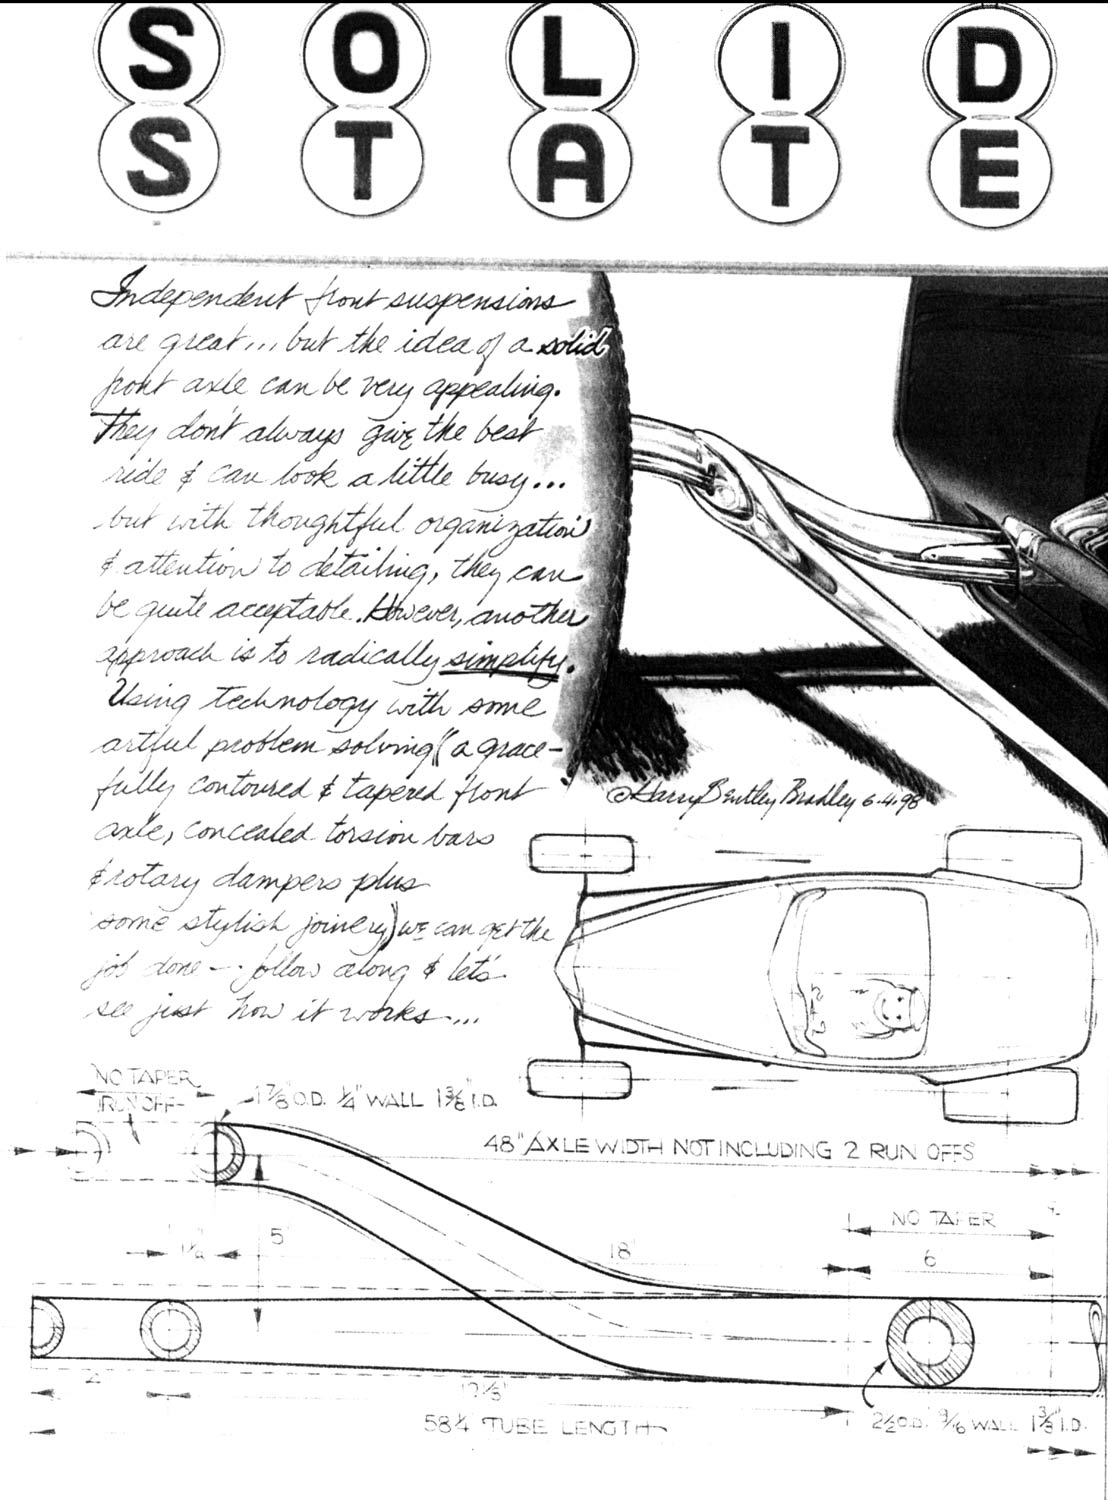 SOLID
STATE
Independent front suspensions
are great... but the idea of a solid
front axle can be very appealing.
They don't always give the best
ride & can look a little busy...
but with thoughtful organization
& attention to detailing, they can
be quite acceptable. However, another
approach is to radically simplify.
Using technology with some
artful problem solving (a grace-
fully contoured & tapered front
axle, concealed torsion bars
& rotary dampers plus
some stylish joinery) we can get the
job done -- follow along & let's
see just how it works....
©Harry Bentley Bradley 6.4.98
NO TAPER
RUN OFF
1 7/8" O.D. 1/4" WALL 1 3/8" I.D.
48" AXLE WIDTH NOT INCLUDING 2 RUN OFFS
NO TAPER
5"
18"
6
58 1/4 TUBE LENGTH
2 1/2 O.D. 9/16 WALL 1 3/8" I.D.